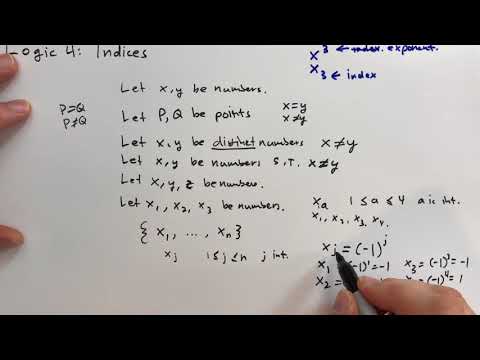 Logic 4: Indices
x³ ← index. exponent.
x₃ ← index
Let x,y be numbers.
P=Q
P≠Q
Let P,Q be points
x=y
x≠y
Let x,y be distinct numbers x≠y
Let x,y be numbers s.t. x≠y
Let x,y,z be numbers.
Let x₁,x₂,x₃ be numbers.
{x₁, ..., xₙ}
xⱼ 1≤j≤n j int.
xₐ 1≤a≤4 a is int.
x₁, x₂, x₃, x₄.
xⱼ=(-1)ʲ
x₁ (-1)¹=-1 x₃=(-1)³=-1
x₂= =(-1)⁴=1